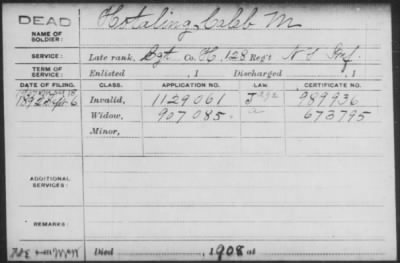 DEAD
NAME OF SOLDIER: Hotaling, Caleb M
SERVICE: Late rank, Sgt Co. H, 128 Reg't N Y Inf.
TERM OF SERVICE: Enlisted , 1 Discharged , 1
DATE OF FILING. CLASS. APPLICATION NO. LAW. CERTIFICATE NO.
1892 Sept 6 Invalid, 1129061 J 989936
Widow, 907085. a 673795
Minor,
ADDITIONAL SERVICES:
REMARKS:
Died , 1908 at